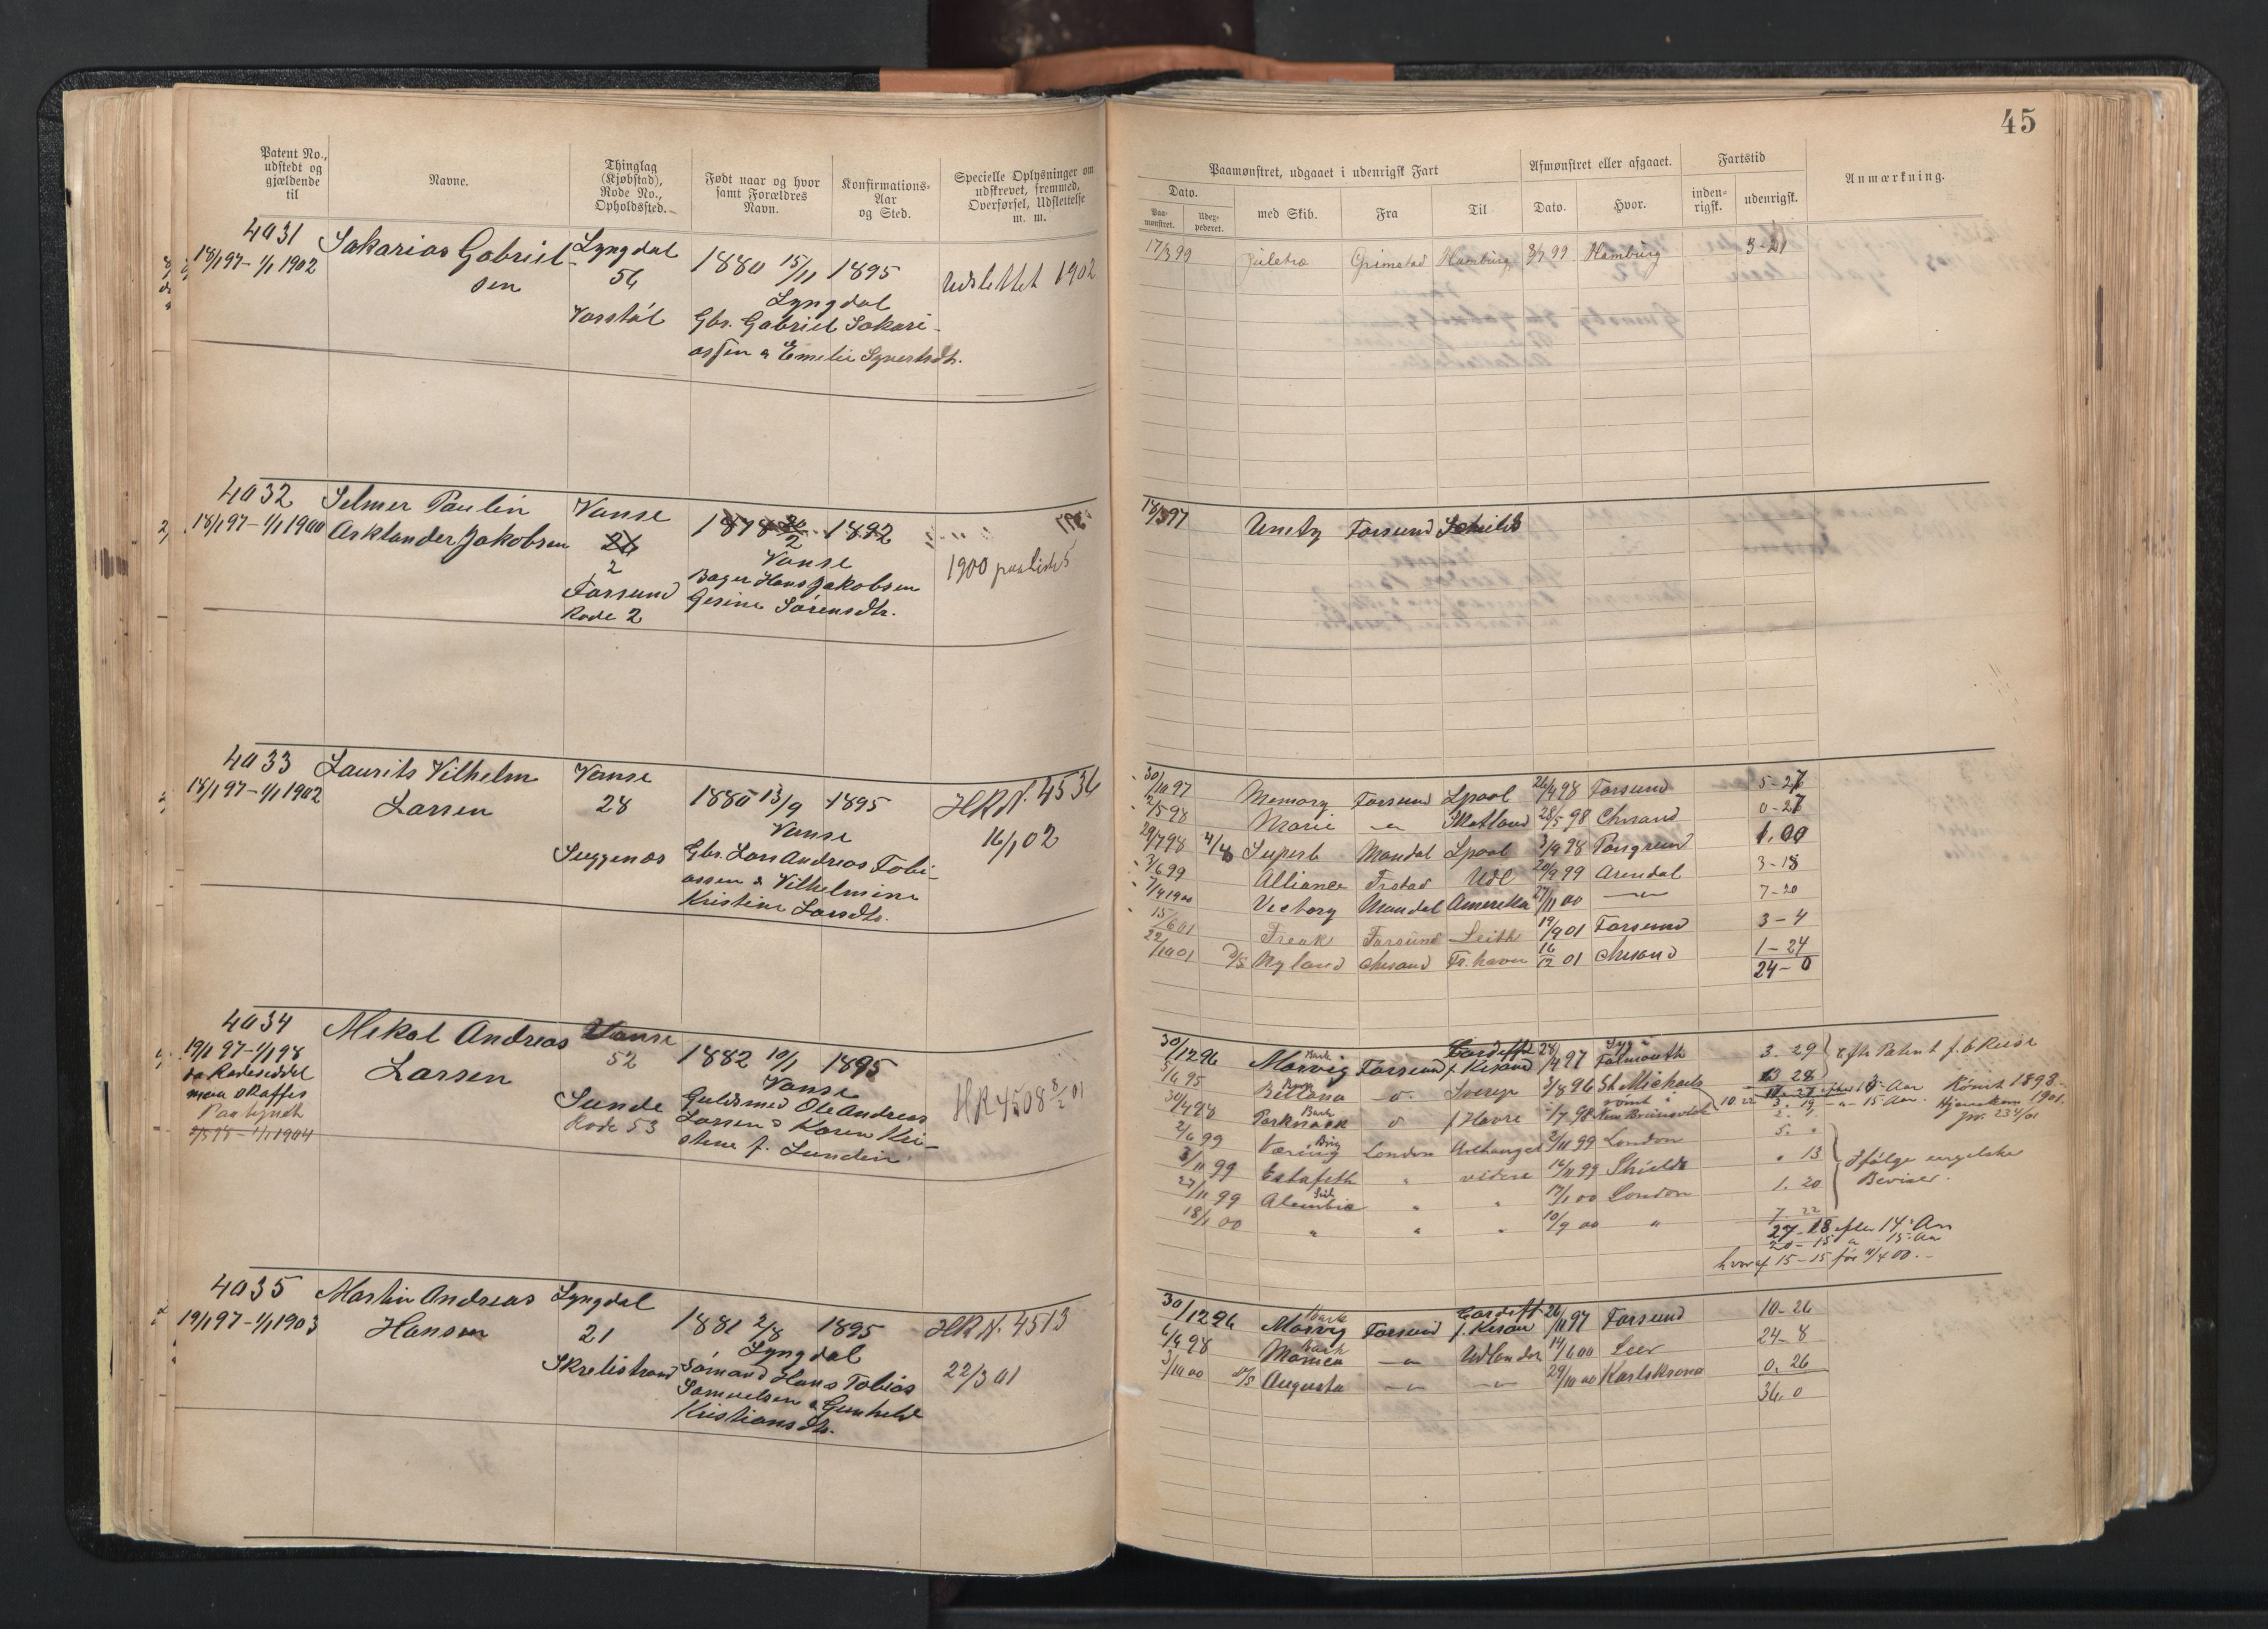 45
Patent No., udstedt og gjældende til
Navne.
Thinglag (Kjøbstad), Rode No., Opholdssted.
Født naar og hvor samt Forældres Navn.
Konfirmations-Aar og Sted.
Specielle Oplysninger om udskrevet, fremmed, Overførsel, Udslettelse m. m.
Paamønstret, udgaaet i udenrigsk Fart
Dato.
Paa-mønstret.
Uder-pederet.
med Skib.
Fra
Til
Afmønstret eller afgaaet.
Dato.
Hvor.
Fartstid
inden-rigsk.
udenrigsk.
Anmærkning.
4031 Sakarias Gabriel- Lyngdal
18/1 97 - 1/1 1902 sen 56 1880 15/11 1895 Udslettet 1902
Lyngdal
Gbr. Gabriel Sakari-
assen & Emelie Syvertsdtr.
17/3 99 Juletræ Grimstad Hamburg 8/7 99 Hamburg 3-21
4032 Selmer Paulin Vanse
18/1 97 - 1/1 1900 Asklander Jakobsen 26 1878 20/2 1892
2 Vanse 1900
Farsund Bager Hans Jakobsen
Rode 2 Gesine Sørensdtr.
18/3 97 Unity Farsund Schields
4033 Laurits Vilhelm Vanse
18/1 97 - 1/1 1902 Larsen 28 1880 13/9 1895 HR N. 4536
Vanse 16/1 02
Suggenæs Gbr. Lars Andreas Tobi-
assen & Vilhelmine
Kristine Larsdtr.
30/10 97 Memory Farsund Lpool 26/4 98 Farsund 5-27
2/5 98 Marie - " - Skotland 28/5 98 Chrsand 0-27
29/7 98 4/8 Superb Mandal Lpool 3/9 98 Porsgrund 1.00
2/6 99 Alliance Frstad Udl 20/9 99 Arendal 3-18
7/4 1900 Victory Mandal Amerika 27/11 00 - " - 7-20
15/6 01 Freak Farsund Leith 19/9 01 Farsund 3-4
22/10 01 D/S Nyland Chrsand Fr.havn 16/12 01 Chrsand 1-24
24-0
4034 Mekal Andreas Vanse
19/1 97 - 1/1 98 Larsen 52 1882 10/1 1895 HR 4508 8/2 01
da Rodeseddel Vanse
maa skaffes Sunde Guldsmed Ole Andreas
Paategndt Rode 53 Larsen & Karen Kri-
2/5 98 - 1/1 1904 stine f. Lunden
30/12 96 Morvig Bark Farsund Cardiff f. Krsand 28/4 97 Syg i Falmouth 3.29 efter Patent f.
Bellona Sverige 3/8 96 St Michaels 13 28
30/4 98 Parknook Bark f Havre /7 98 New Brunsvick 10 22 3. 19 - " - 15 Aar. Rømt 1898.
Hjemkom 1901.
2/6 99 Væring Brig London Archangel 2/11 99 London 5. "
3/11 99 Estafeth " videre 16/11 99 Shields " 13 Ifølge engelske
27/11 99 Alembia " " 17/1 00 London 1. 20 Beviser.
18/1 00 " " " 10/9 00 " 7. 22
27-18 efter 14 Aar
20-15 " 15 Aar
hvoraf 15-15 før 11/4 00.-
4035 Martin Andreas Lyngdal
19/1 97 - 1/1 1903 Hansen 21 1881 2/8 1895 HR N. 4513
Lyngdal 22/3 01
Skrelistrand Sømand Hans Tobias
Samuelsen & Gunhild
Kristiansdtr.
30/12 96 Morvig Bark Farsund Cardiff f. Krsan 26/11 97 Farsund 10-26
6/6 98 Monica Bark - " - Udlandet 14/6 00 Leer 24-8
3/10 00 D/S Augusta - " - - " - 29/10 00 Karlskrona 0.26
36.0